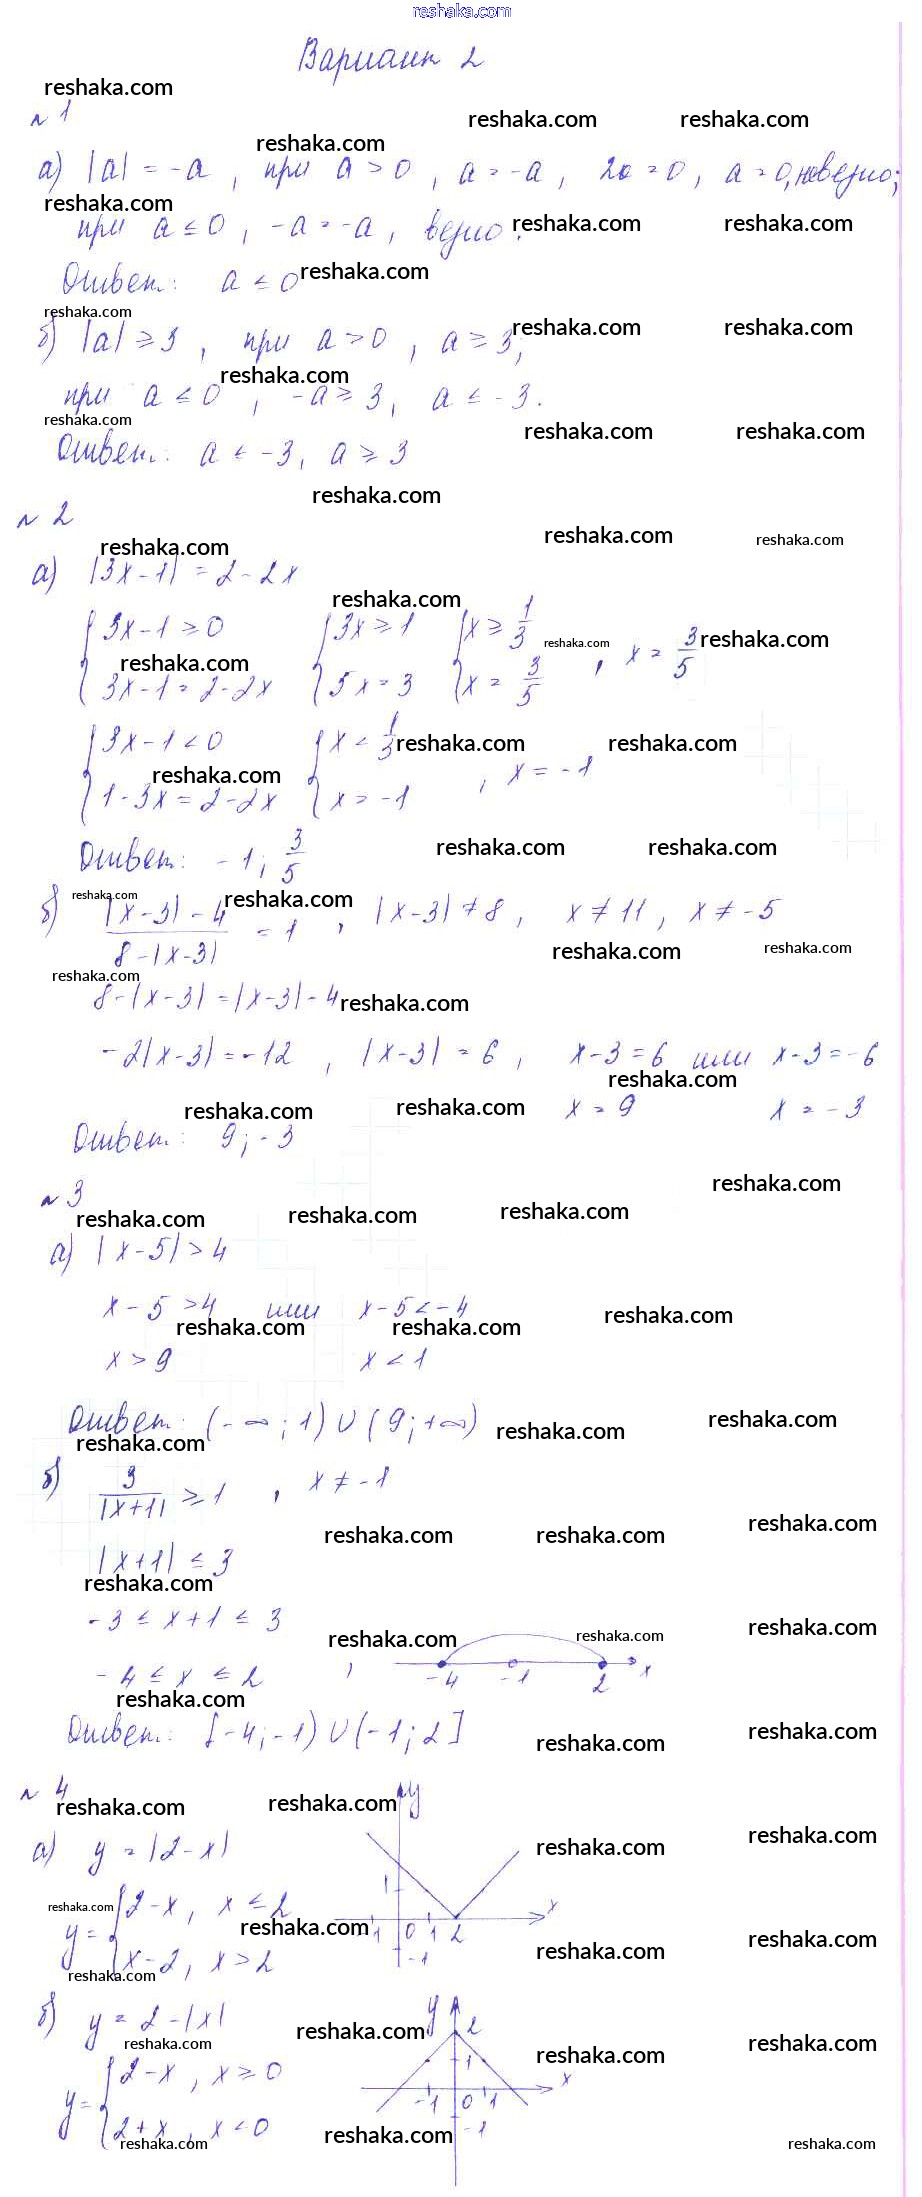 reshaka.com
Вариант 2
№ 1
а) |a| = -a, при a > 0, a = -a, 2a = 0, a = 0, неверно;
при a ≤ 0, -a = -a, верно.
Ответ: a ≤ 0
б) |a| ≥ 3, при a > 0, a ≥ 3;
при a ≤ 0, -a ≥ 3, a ≤ -3.
Ответ: a ≤ -3, a ≥ 3
№ 2
а) |3x-1| = 2-2x
{ 3x-1 ≥ 0 { 3x ≥ 1 { x ≥ 1/3
{ 3x-1 = 2-2x { 5x = 3 { x = 3/5 , x = 3/5
{ 3x-1 < 0 { x < 1/3
{ 1-3x = 2-2x { x = -1 , x = -1
Ответ: -1; 3/5
б) (|x-3|-4)/(8-|x-3|) = 1, |x-3| ≠ 8, x ≠ 11, x ≠ -5
8-|x-3| = |x-3|-4
-2|x-3| = -12, |x-3| = 6, x-3 = 6 или x-3 = -6
x = 9 x = -3
Ответ: 9; -3
№ 3
а) |x-5| > 4
x-5 > 4 или x-5 < -4
x > 9 x < 1
Ответ: (-∞; 1) ∪ (9; +∞)
б) 3/|x+1| ≥ 1, x ≠ -1
|x+1| ≤ 3
-3 ≤ x+1 ≤ 3
-4 ≤ x ≤ 2, -4 -1 2 x
Ответ: [-4; -1) ∪ (-1; 2]
№ 4
а) y = |2-x|
y = { 2-x, x ≤ 2
{ x-2, x > 2
y 1 -1 0 1 2 x -1
б) y = 2-|x|
y = { 2-x, x ≥ 0
{ 2+x, x < 0
y 2 1 -1 0 1 x -1
reshaka.com